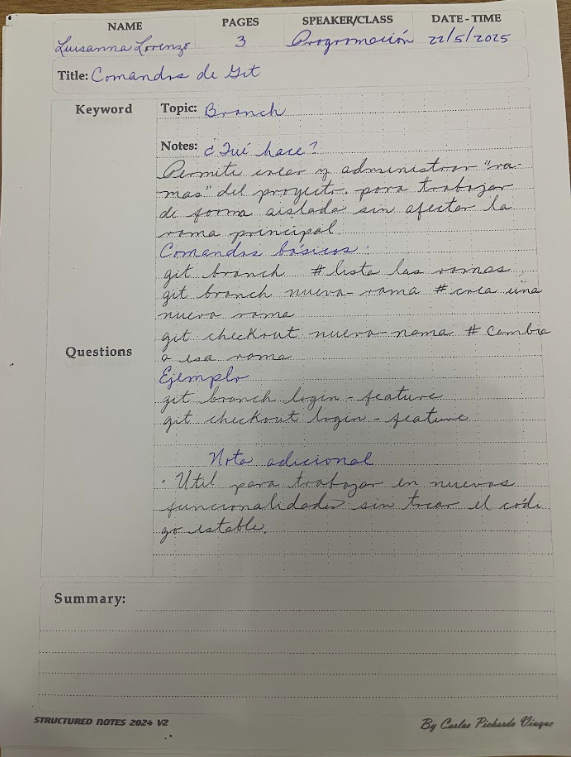 NAME PAGES SPEAKER/CLASS DATE - TIME
Luisanna Lorenzo 3 Programación 22/5/2025
Title: Comandos de Git
Keyword Topic: Branch
Notes: ¿Qué hace?
Permite crear y administrar "ra-
mas" del proyecto, para trabajar
de forma aislada sin afectar la
rama principal.
Comandos básicos:
git branch # lista las ramas
git branch nueva-rama # crea una
nueva rama
git checkout nueva-rama # Cambia
Questions a esa rama
Ejemplo
git branch login-feature
git checkout login-feature
Nota adicional
· Util para trabajar en nuevas
funcionalidades sin tocar el códi
go estable.
Summary:
STRUCTURED NOTES 2024 V2 By Carlos Pichardo Viuque